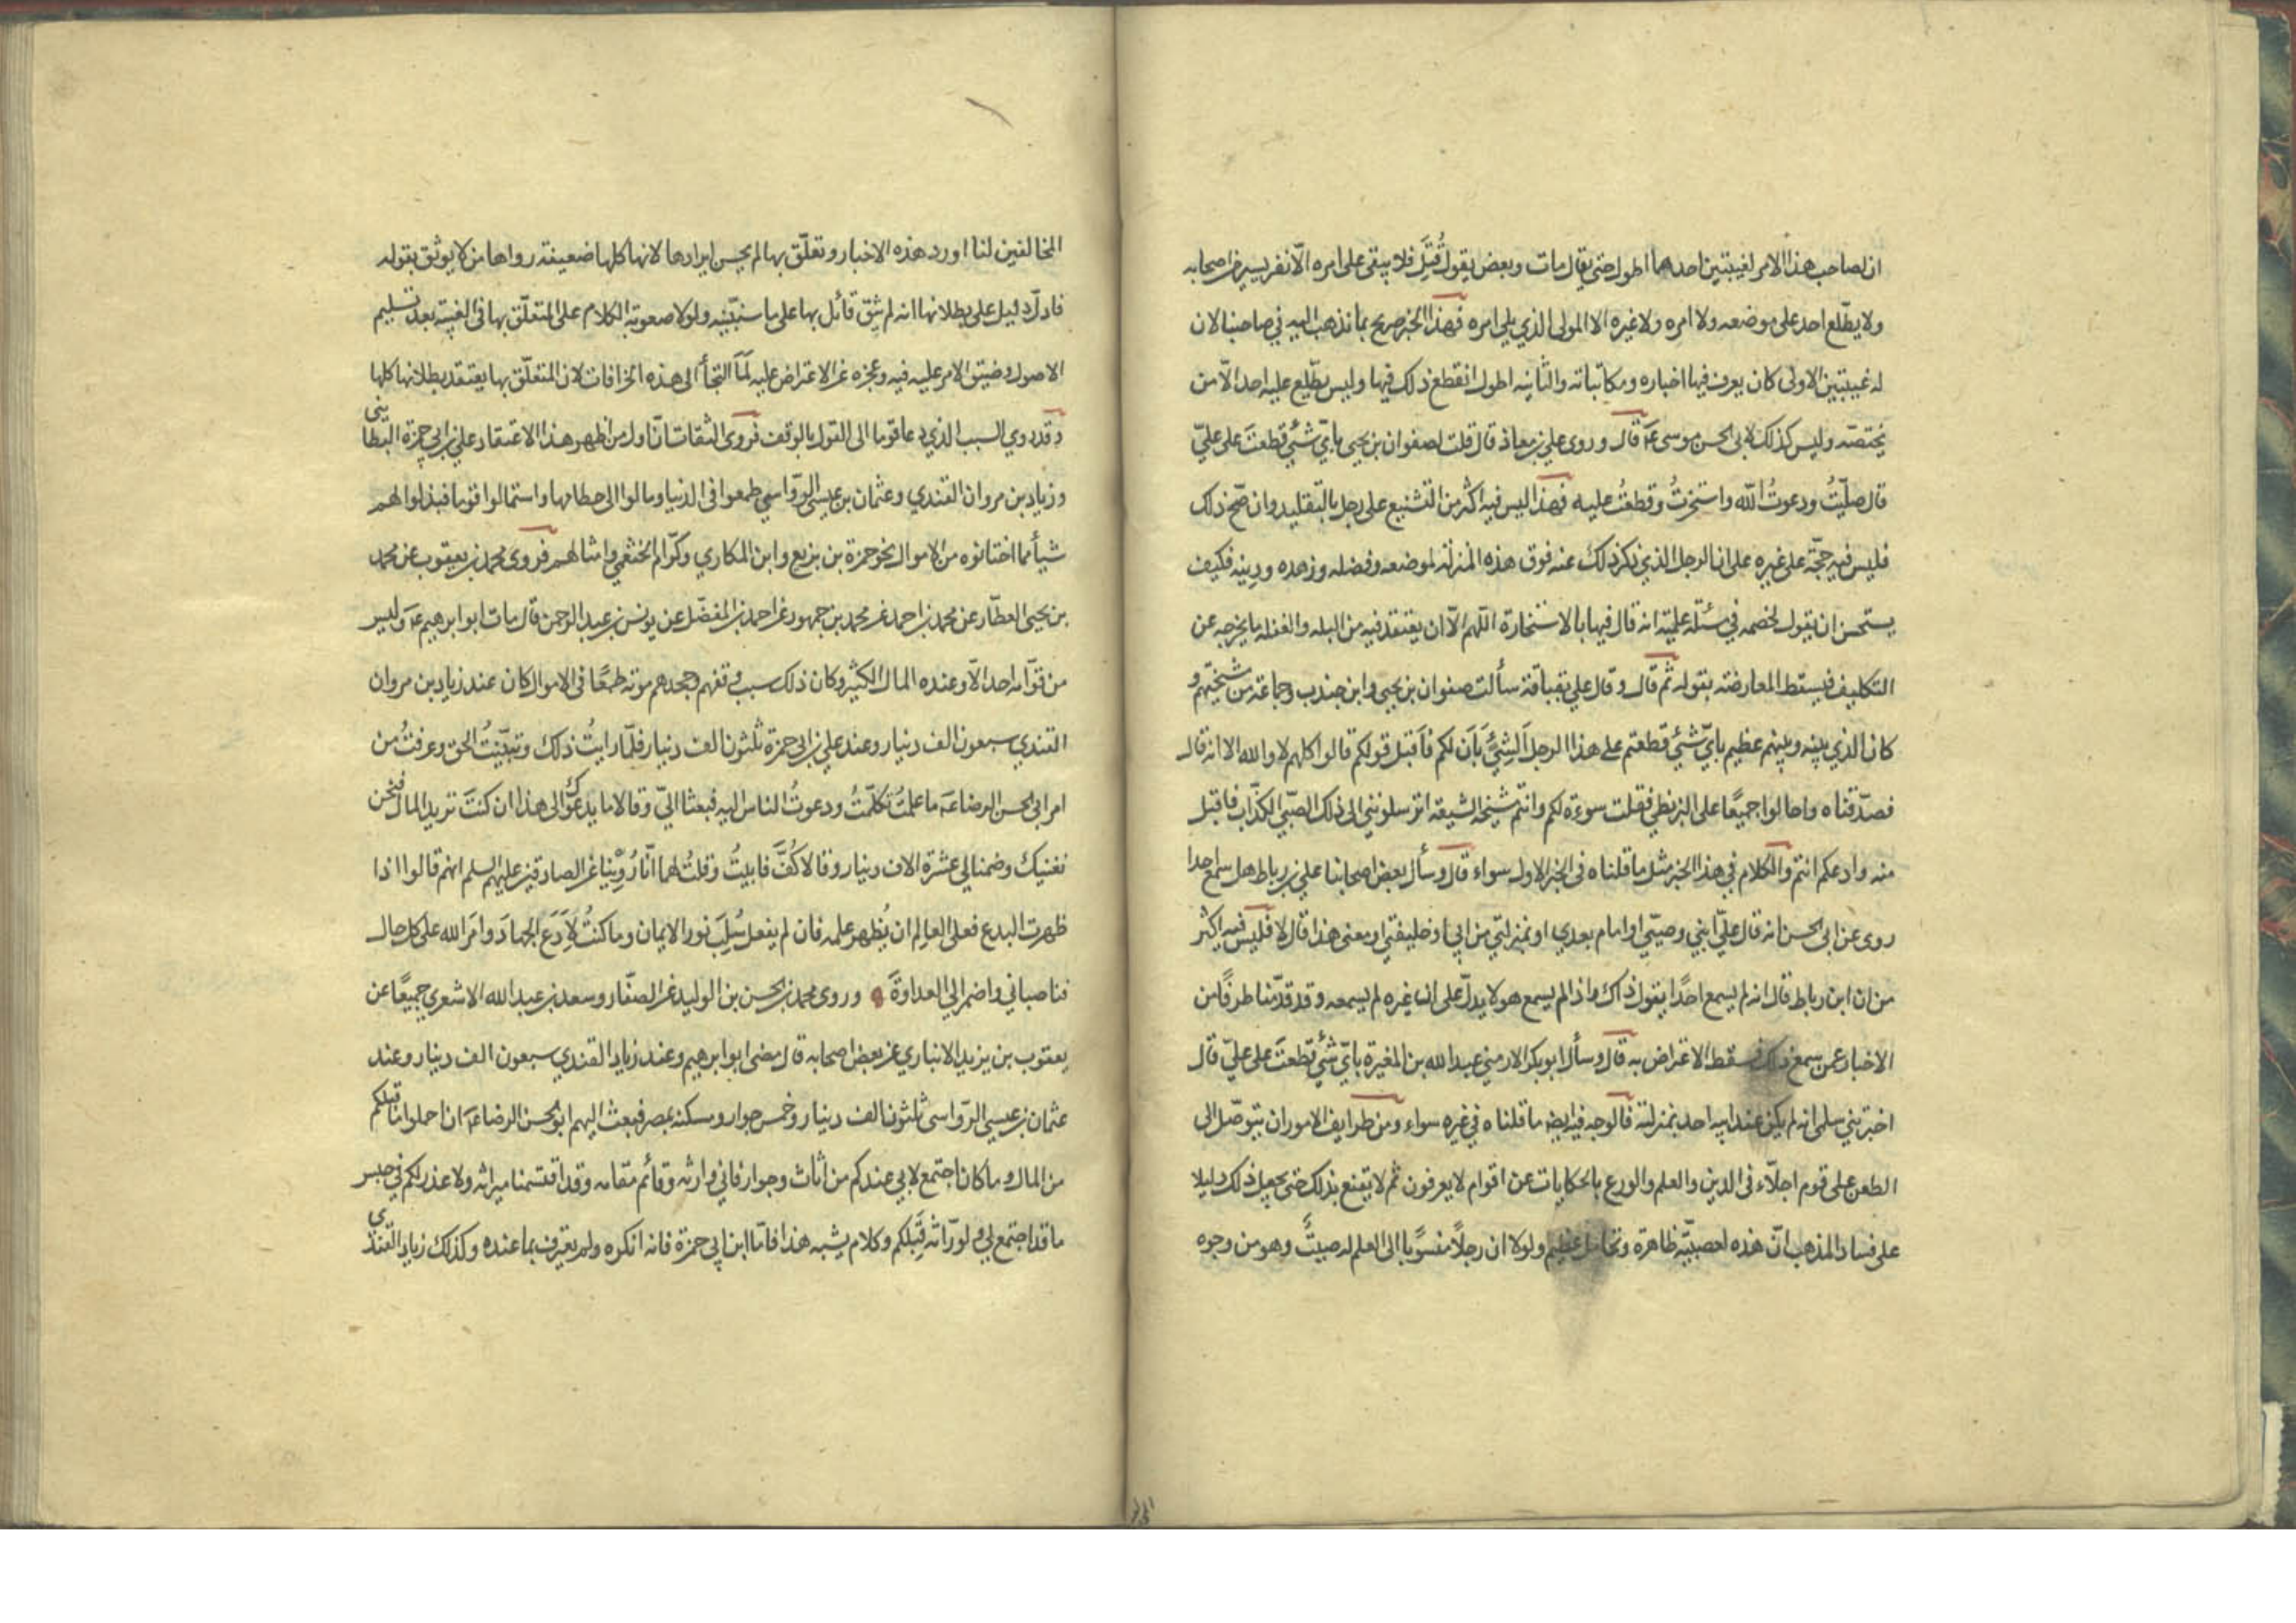 ان لصاحب هذا الامر لغيبتين احدهما اطول حتى يقال مات وبعض يقول قُتِلَ فلا يبقى على امره الّا نفر يسير من اصحابه
ولا يطّلع احد على موضعه ولا امره ولا غيره الا المولى الذي يلي امره فهذا الخبر صريح بما نذهب اليه في صاحبنا لان
له غيبتين الاولى كان يعرف فيها اخباره ومكاتباته والثانيه اطول انقطع ذلك فيها وليس يطّلع عليه احد الّا من
يختصّه وليس كذلك لابى الحسن موسى عَم قال وروى علي بن معاذ قال قلت لصفوان بن يحيى بايّ شئي قطعتَ على عليّ
قال صلّيتُ ودعوتُ اللّه واستخرتُ وقطعتُ عليه فهذا ليس فيه اكثر من التشنيع على رجل بالتقليد وان صّح ذلك
فليس فيه حجّة على غيره على ان الرجل الذي ذكر ذلك عنه فوق هذه المنزلة لموضعه وفضله وزهده ودينه فكيف
يستحسن ان يقول لخصمه في مسئلة علميّة انه قال فيها بالاستخارة اللّهم الّا ان يعتقد فيه من البله والغفله ما يخرجه عن
التكليف فيسقط المعارضة بقوله ثم قال وقال علي بقباقة سألت صفوان بن يحيى وابن جندب وجماعة من مشيختهم و
كان الذي بينه وبينهم عظيم بايّ شئي قطعتم على هذا الرجل اَلِشيٍ بَانَ لكم فاَقبل قولكم قالوا كلهم لا والله الا انه قال
فصدّقناه واحالوا جميعًا على البزنطي فقلت سوءة لكم وانتم مشيخة الشيعة اترسلونني الى ذلك الصبّي الكذّاب فاقبل
منه وادعكم انتم والكلام في هذا الخبر مثل ما قلناه فى الخبر الاول سواء قال وسأل بعض اصحابنا علي بن رباط هل سمع احدا
روى عن ابى الحسن انه قال عليّ ابني وصيّي او امام بعدي او بمنزلتي من ابي او خليفتي او معنى هذا قال لا فليس فيه اكثر
من ان ابن رباط قال انه لم يسمع احدًا يقول ذاك واذا لم يسمع هو لا يدلّ على ان غيره لم يسمعه وقد قدّمنا طرفًا من
الاخبار عمن سمع ذلك فسقط الاعتراض به قال وسأل ابو بكر الارمني عبد الله بن المغيرة بايّ شئي قطعتَ على عليّ قال
اخبرتني سلمى انه لم يكن عند ابيه احد بمنزلته فالوجه فيه ايضا ما قلناه في غيره سواء ومن طرايف الامور ان يتوصّل الى
الطعن على قوم اجلّاء فى الدين والعلم والورع بالحكايات عن اقوام لا يعرفون ثم لا يقنع بذلك حتى يجعل ذلك دليلا
على فساد المذهب انّ هذه لعصبيّة ظاهرة وتحامل عظيم ولولا ان رجلًا منسوبًا الى العلم له صيتٌ وهو من وجوه
المخالفين لنا اورد هذه الاخبار وتعلّق بها لم يحسن ايرادها لانها كلها ضعيفة رواها من لا يوثق بقوله
فادلّ دليل على بطلانها انه لم يثق قائل بها على ما سنبيّنه ولولا صعوبة الكلام على المتعلّق بها فى الغيبة بعد تسليم
الاصول وضيق الامر عليه فيه وعجزه عن الاعتراض عليه لَمَا التجأ الى هذه الخرافات لان المتعلّق بها يعتقد بطلانها كلها
وقد روي السبب الذي دعا قوما الى القول بالوقف فروى الثقات انّ اول من اظهر هذا الاعتقاد علي بن ابي حمزة البطائنى
وزياد بن مروان القندي وعثمان بن عيسى الروّاسي طمعوا فى الدنيا ومالوا الى حطامها واستمالوا قوما فبذلوا لهم
شيأ مما اختانوه من الاموال نحو حمزة بن بزيع وابن المكاري وكرّام الخثعمي وامثالهم فروى محمد بن يعقوب عن محمد
بن يحيى العطّار عن محمد بن احمد عن محمد بن جمهور عن احمد بن المفضّل عن يونس بن عبد الرحمن قال مات ابو ابرهيم عَم وليس
من قوّامه احد الّا وعنده المال الكثير وكان ذلك سبب وقفهم وجحدهم موته طمعًا فى الاموال كان عند زياد بن مروان
القندي سبعون الف دينار وعند علي بن ابي حمزة ثلثون الف دينار فلمّا رايتُ ذلك وتبيّنتُ الحق وعرفتُ من
امر ابى الحسن الرضا عَم ما علمتُ تكلّمتُ ودعوتُ الناس اليه فبعثا اليّ وقالا ما يدعوك الى هذا ان كنتَ تريد المال فنحن
نغنيك وضمنا لي عشرة الاف دينار وقالا كُفَّ فابيتُ وقلتُ لهما انّا رُوّينا عن الصادقين عليهم السلم انهم قالوا اذا
ظهرت البدع فعلى العالم ان يُظهر علمه فان لم يفعل سُلِبَ نور الايمان وما كنتُ لِاَدَعَ الجهادَ وامرَ الله على كل حال
فناصبانى واضمرا لي العداوةَ وروى محمد بن الحسن بن الوليد عن الصفّار وسعد بن عبد الله الاشعري جميعًا عن
يعقوب بن يزيد الانباري عن بعض اصحابه قال مضى ابو ابرهيم وعند زياد القندي سبعون الف دينار وعند
عثمان بن عيسى الروّاسى ثلثون الف دينار وخمس جوار ومسكنه بمصر فبعث اليهم ابو الحسن الرضا عَم ان احملوا ما قبلكم
من المال وما كان اجتمع لابي عندكم من اثاث وجوار فاني وارثه وقائم مقامه وقد اقتسمنا ميراثه ولا عذر لكم في حبس
ما قد اجتمع لي ولورّاثه قِبَلكم وكلام يشبه هذا فامّا ابن ابي حمزة فانه انكره ولم يعترف بما عنده وكذلك زياد القندى